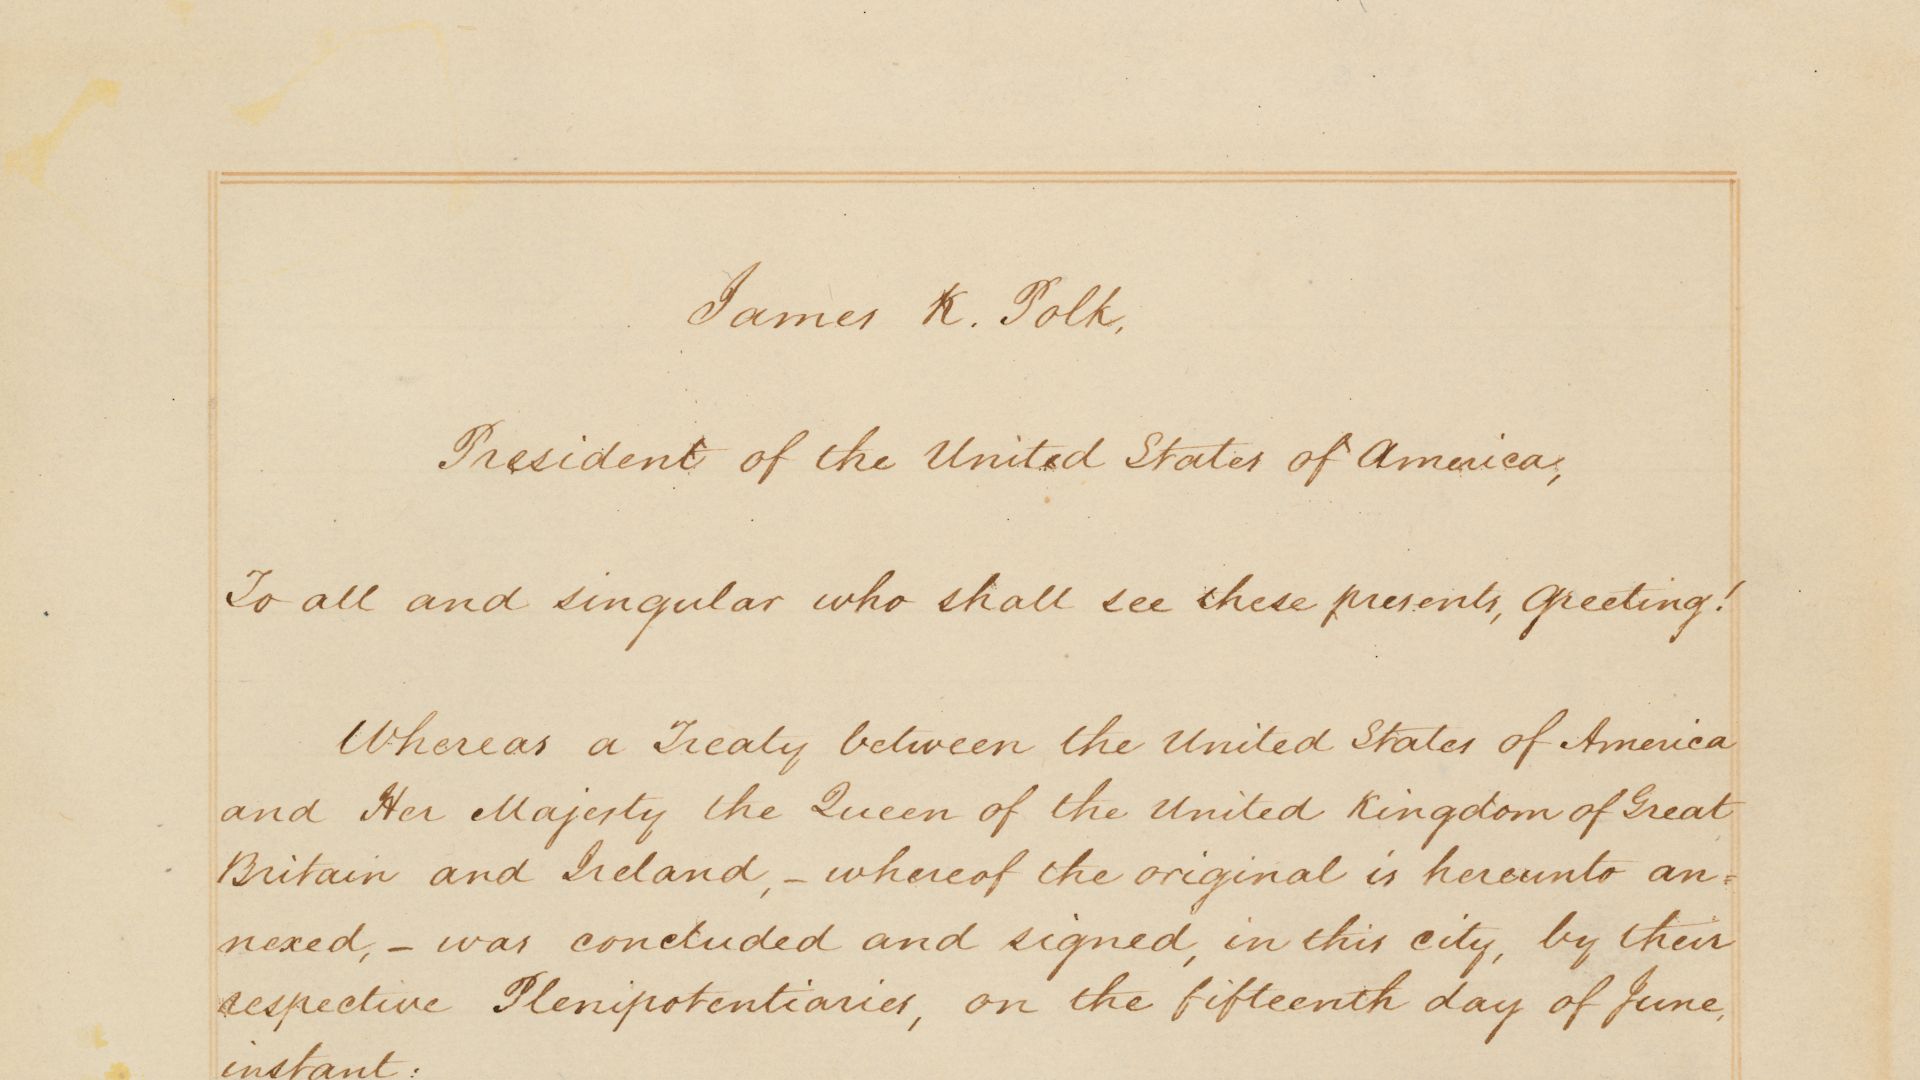 James K. Polk,
President of the United States of America,
To all and singular who shall see these presents, Greeting!
Whereas a Treaty between the United States of America
and Her Majesty the Queen of the United Kingdom of Great
Britain and Ireland, – whereof the original is hereunto an=
nexed, – was concluded and signed, in this city, by their
respective Plenipotentiaries, on the fifteenth day of June,
instant: